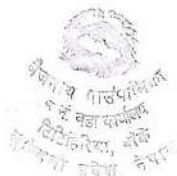 बैजनाथ गाउँपालिका
५ नं. वडा कार्यालय
टिटिहिरिया, बाँके
लुम्बिनी प्रदेश, नेपाल